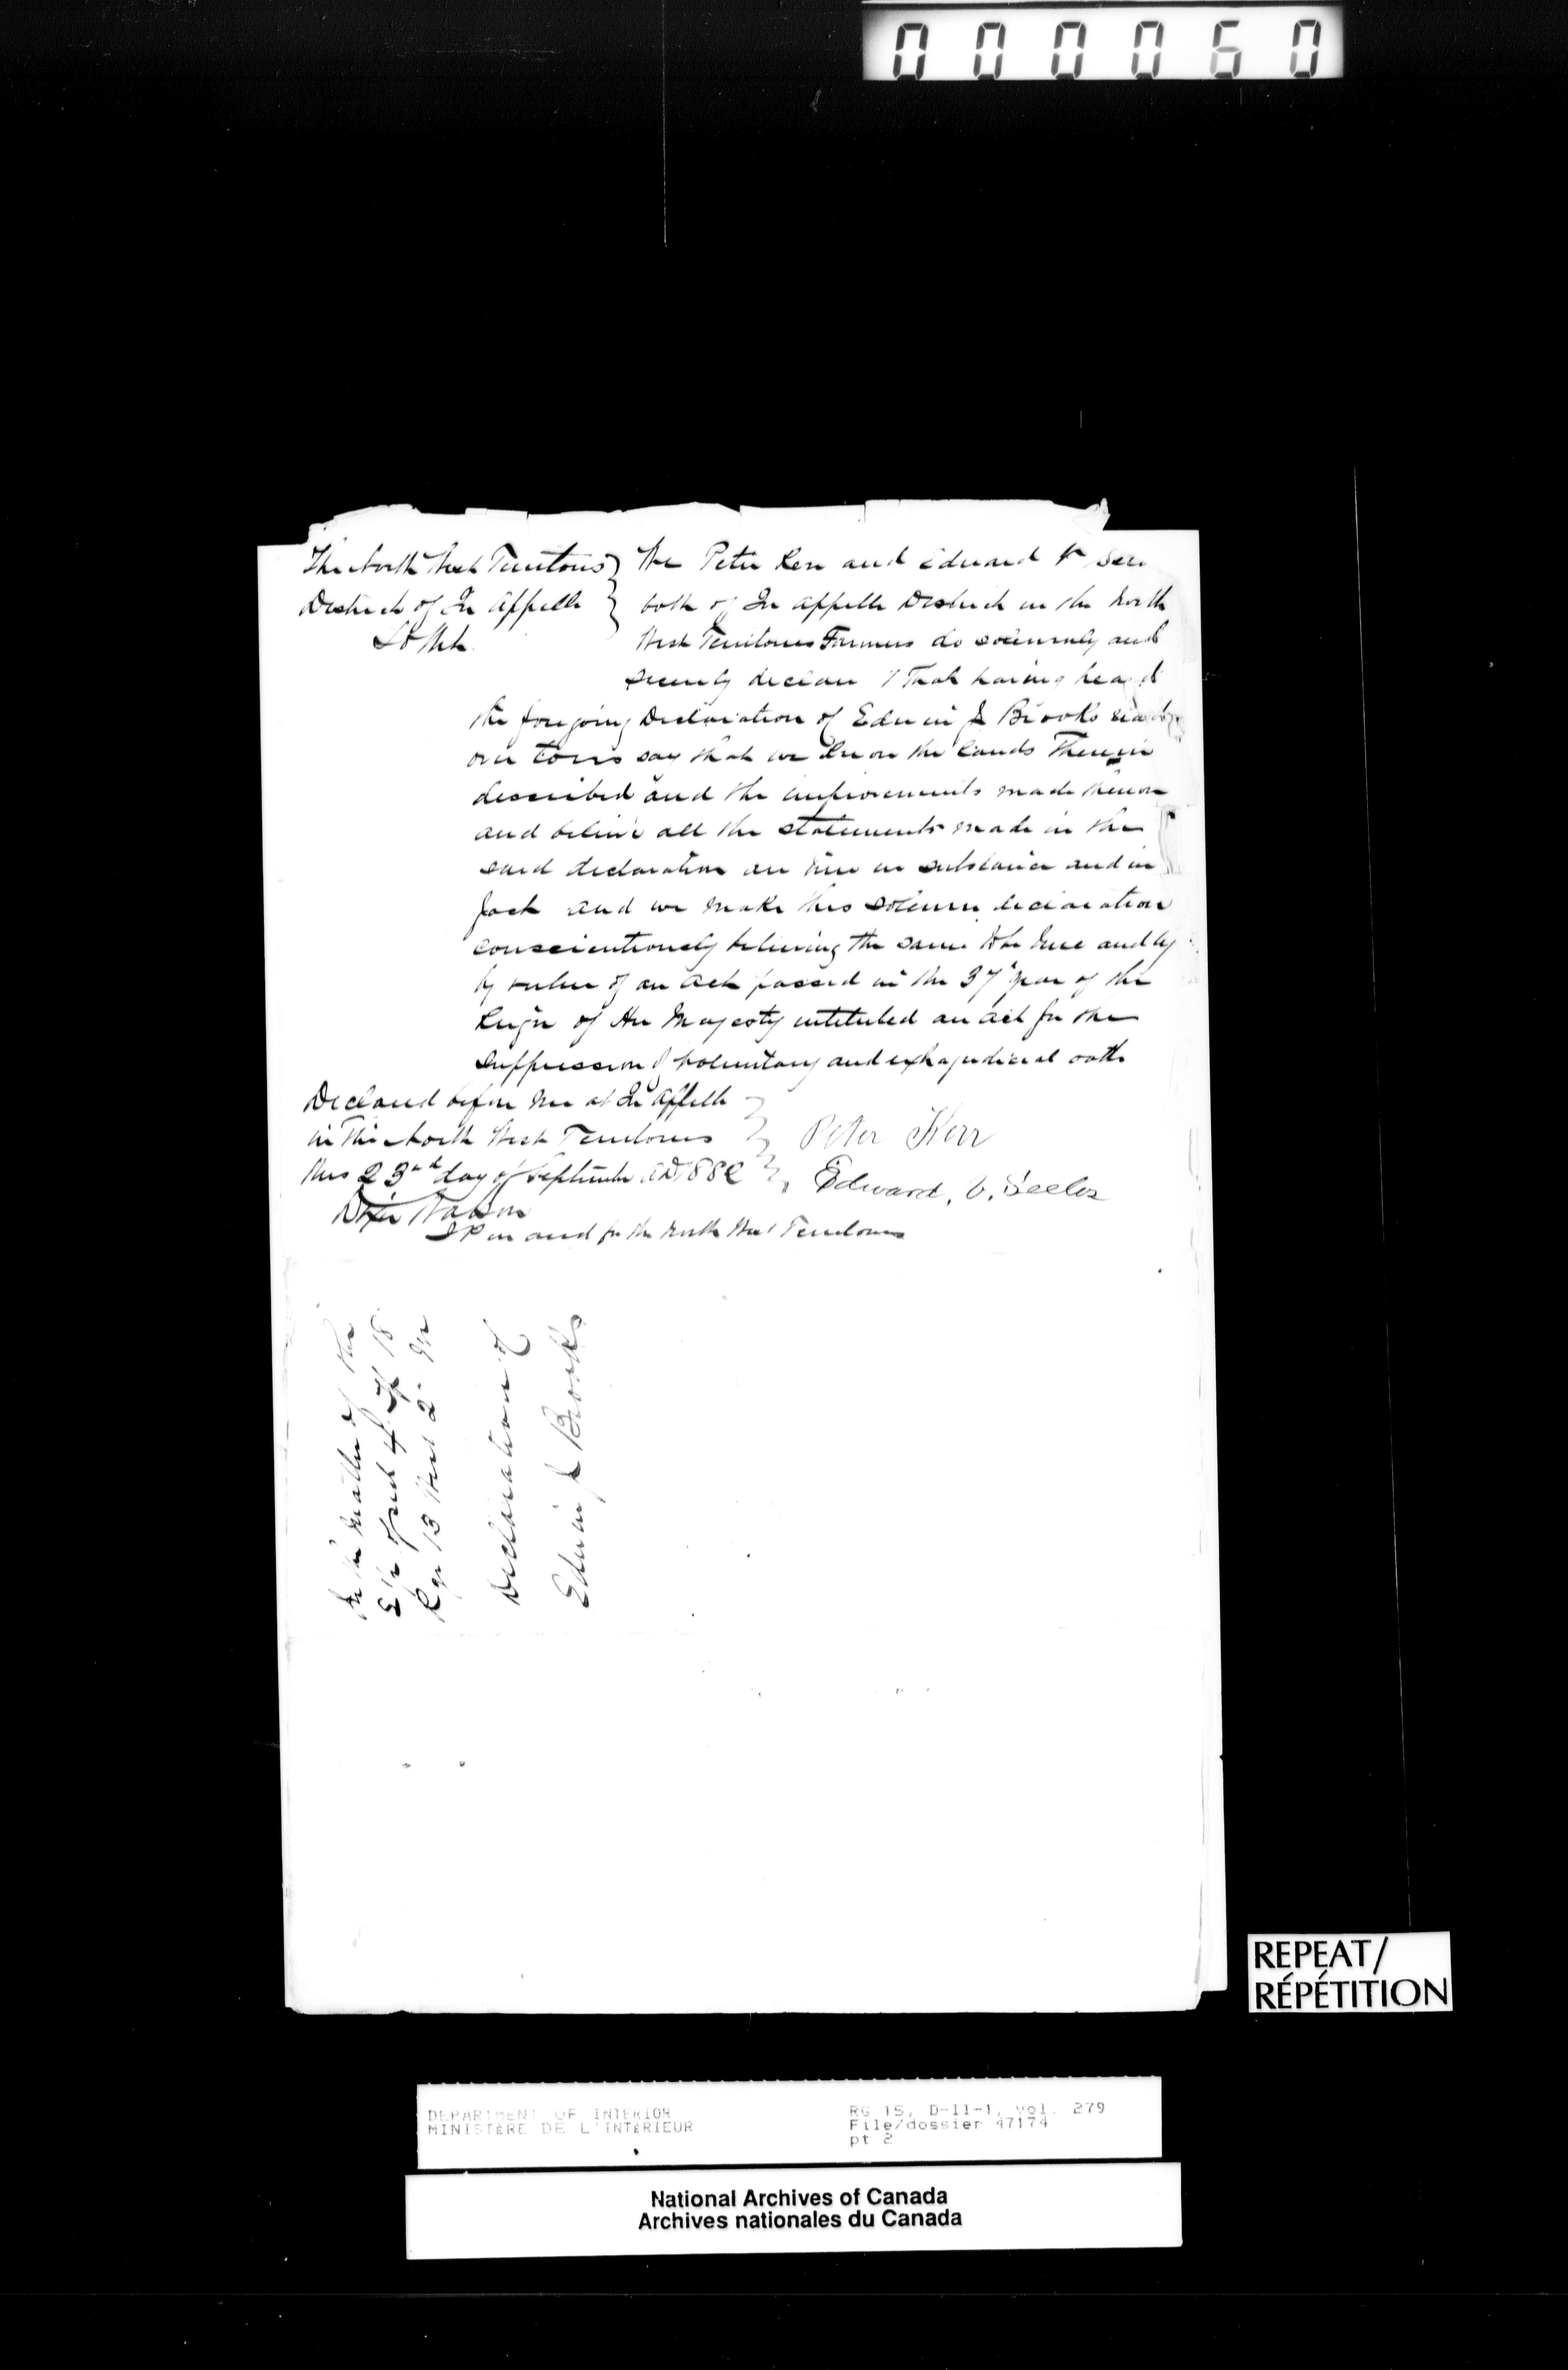 000060
The North West Territories } We Peter Kerr and Edward V See
District of Qu Appelle } both of Qu Appelle District in the North
To Wit West Territories Farmers do solemnly and
decl declare 1 That having heard
the foregoing Declaration of Edwin J Brooks read
over to us say that we know the lands Therein
described and the improvements made thereon
and believe all the statements made in the
said declaration are true in substance and in
fact and we make this solemn declaration
conscientiously believing the same to be true and by
by virtue of an act passed in the 37 year of the
Reign of Her Majesty intituled an act for the
suppression of voluntary and extrajudicial oaths
Declared before me at Qu Appelle
in The North West Territories
this 23rd day of September AD 1882
Peter Kerr
Edward, V, Seeler
J P in and for the North West Territories
In the matter of the
E 1/2 of sect 4 Tp 18
Rge 13 West 2nd Mer
Declaration of
Edwin J Brooks
REPEAT/
RÉPÉTITION
DEPARTMENT OF INTERIOR
MINISTÈRE DE L'INTÉRIEUR
RG 15, D-II-1, vol. 279
File/dossier 47174
pt 2
National Archives of Canada
Archives nationales du Canada